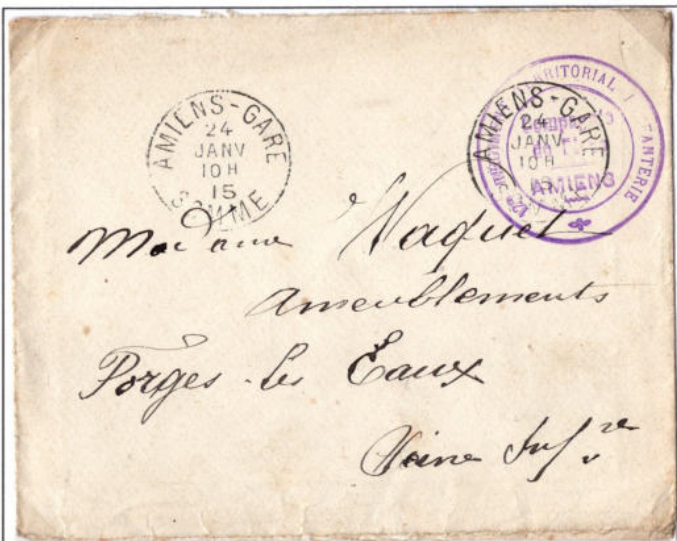 AMIENS-GARE
24
JANV
10 H
15
SOMME
AMIENS-GARE
24
JANV
10 H
15
12e TERRITORIAL
AMIENS
Madame Vaquet
Ameublements
Forges-les Eaux
Seine Infre